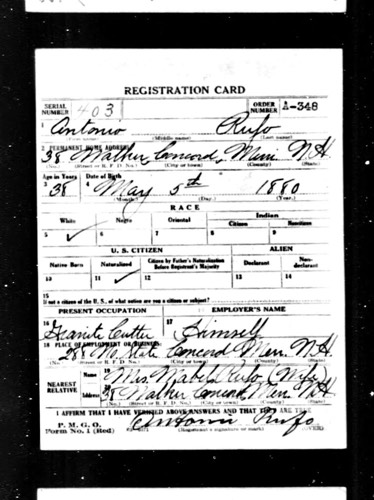 REGISTRATION CARD
SERIAL NUMBER 403 ORDER NUMBER A-348
1 Antonio Rufo
(First name) (Middle name) (Last name)
2 PERMANENT HOME ADDRESS
38 Walker, Concord, Merr. N.H.
(No.) (Street or R. F. D. No.) (City or town) (County) (State)
Age in Years Date of Birth
3 38 4 May 5th 1880
(Month) (Day.) (Year.)
RACE
White Negro Oriental Indian
Citizen Noncitizen
5 ✓ 6 7 8 9
U. S. CITIZEN ALIEN
Native Born Naturalized Citizen by Father's Naturalization Before Registrant's Majority Declarant Non-declarant
10 11 ✓ 12 13 14
15 If not a citizen of the U. S., of what nation are you a citizen or subject?
PRESENT OCCUPATION EMPLOYER'S NAME
16 Granite Cutter 17 Himself
18 PLACE OF EMPLOYMENT OR BUSINESS
288 No. State Concord Merr. N.H.
(No.) (Street or R. F. D. No.) (City or town) (County) (State)
NEAREST RELATIVE Name 19 Mrs. Mabel Rufo (Wife)
Address 20 38 Walker Concord, Merr. N.H.
(No.) (Street or R. F. D. No.) (City or town) (County) (State)
I AFFIRM THAT I HAVE VERIFIED ABOVE ANSWERS AND THAT THEY ARE TRUE
P. M. G. O.
Form No. 1 (Red) Antonio Rufo
(Registrant's signature or mark) (OVER)